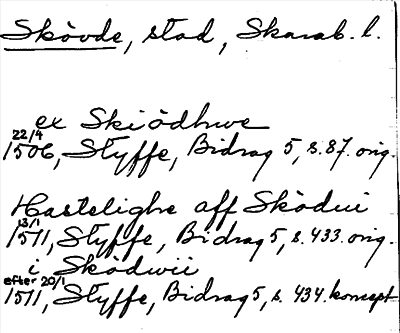 Skövde, stad, Skarab. l.
ex Skiödhwe
22/4
1506, Styffe, Bidrag 5, s. 87. orig.
Hastelighe aff Sködui
13/1
1511, Styffe, Bidrag 5, s. 433. orig.
i Sködwii
efter 20/1
1511, Styffe, Bidrag 5, s. 434. koncept